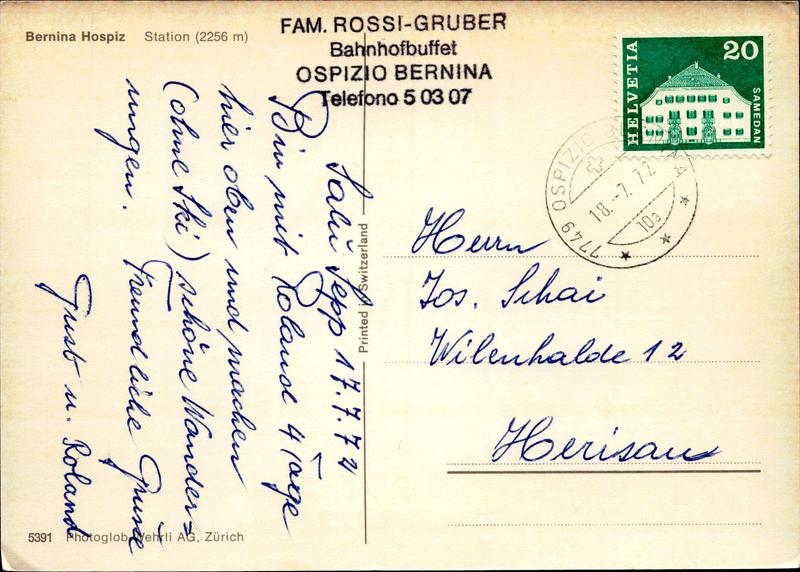 Bernina Hospiz Station (2256 m)
FAM. ROSSI-GRUBER
Bahnhofbuffet
OSPIZIO BERNINA
Telefono 5 03 07
HELVETIA
20
SAMEDAN
7749 OSPIZIO BERNINA
18.-7.72
10a
Salü Sepp 17.7.72
Bin mit Roland 4 Tage
hier oben und machen
(ohne Ski) schöne Wander=
ungen.
Freundliche Grüsse
Gust u. Roland
Printed in Switzerland
Herrn
Jos. Schai
Wilenhalde 12
Herisau
5391 Photoglob-Wehrli AG, Zürich